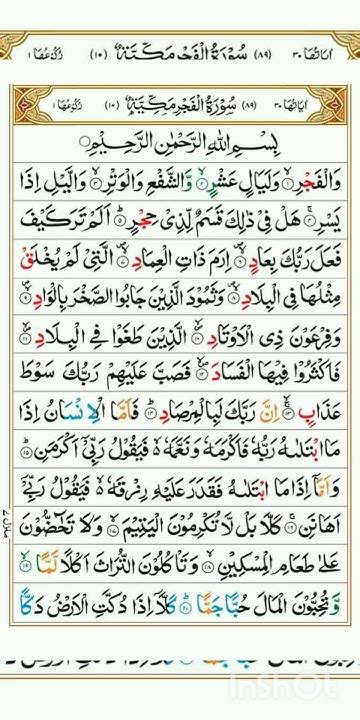 اٰیَاتُهَا ٣٠ (٨٩) سُوْرَةُ الْفَجْرِ مَكِّيَّةٌ (١٠) رُكُوْعُهَا ١
اٰیَاتُهَا ٣٠ (٨٩) سُوْرَةُ الْفَجْرِ مَكِّيَّةٌ (١٠) رُكُوْعُهَا ١
بِسْمِ اللّٰهِ الرَّحْمٰنِ الرَّحِيْمِ
وَالْفَجْرِ ۙ١ وَلَيَالٍ عَشْرٍ ۙ٢ وَّالشَّفْعِ وَالْوَتْرِ ۙ٣ وَالَّيْلِ اِذَا
يَسْرِ ۚ٤ هَلْ فِيْ ذٰلِكَ قَسَمٌ لِّذِيْ حِجْرٍ ؕ٥ اَلَمْ تَرَ كَيْفَ
فَعَلَ رَبُّكَ بِعَادٍ ۙ٦ اِرَمَ ذَاتِ الْعِمَادِ ۙ٧ الَّتِيْ لَمْ يُخْلَقْ
مِثْلُهَا فِي الْبِلَادِ ۙ٨ وَثَمُوْدَ الَّذِيْنَ جَابُوا الصَّخْرَ بِالْوَادِ ۙ٩
وَفِرْعَوْنَ ذِي الْاَوْتَادِ ۙ١٠ الَّذِيْنَ طَغَوْا فِي الْبِلَادِ ۙ١١
فَاَكْثَرُوْا فِيْهَا الْفَسَادَ ۙ١٢ فَصَبَّ عَلَيْهِمْ رَبُّكَ سَوْطَ
عَذَابٍ ۚۙ١٣ اِنَّ رَبَّكَ لَبِالْمِرْصَادِ ؕ١٤ فَاَمَّا الْاِنْسَانُ اِذَا
مَا ابْتَلٰىهُ رَبُّهٗ فَاَكْرَمَهٗ وَنَعَّمَهٗ ۙ فَيَقُوْلُ رَبِّيْۤ اَكْرَمَنِ ؕ١٥
وَاَمَّاۤ اِذَا مَا ابْتَلٰىهُ فَقَدَرَ عَلَيْهِ رِزْقَهٗ ۙ فَيَقُوْلُ رَبِّيْۤ
اَهَانَنِ ۚ١٦ كَلَّا بَلْ لَّا تُكْرِمُوْنَ الْيَتِيْمَ ۙ١٧ وَلَا تَحٰٓضُّوْنَ
عَلٰى طَعَامِ الْمِسْكِيْنِ ۙ١٨ وَتَاْكُلُوْنَ التُّرَاثَ اَكْلًا لَّمًّا ۙ١٩
وَّتُحِبُّوْنَ الْمَالَ حُبًّا جَمًّا ؕ٢٠ كَلَّاۤ اِذَا دُكَّتِ الْاَرْضُ دَكًّا
منزل ٧
InShOt